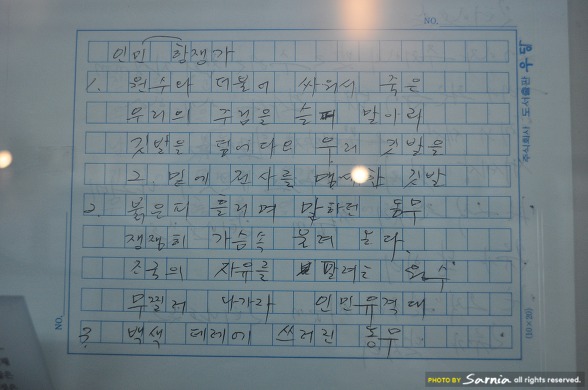 NO.
인민 항쟁가
1. 원수와 더불어 싸워서 죽은
우리의 주검을 슬퍼 말아라
깃발을 덮어다오 우리 깃발을
그 밑에 전사를 맹세한 깃발
2. 붉은피 흘리며 말하던 동무
쟁쟁히 가슴속 울려 온다
조국의 자유를 팔려는 원수
무찔러 나가라 인민유격대
3. 백색 테레에 쓰러진 동무
주식회사 도서출판 우당
NO.
(10×20)
PHOTO BY Sarnia all rights reserved.